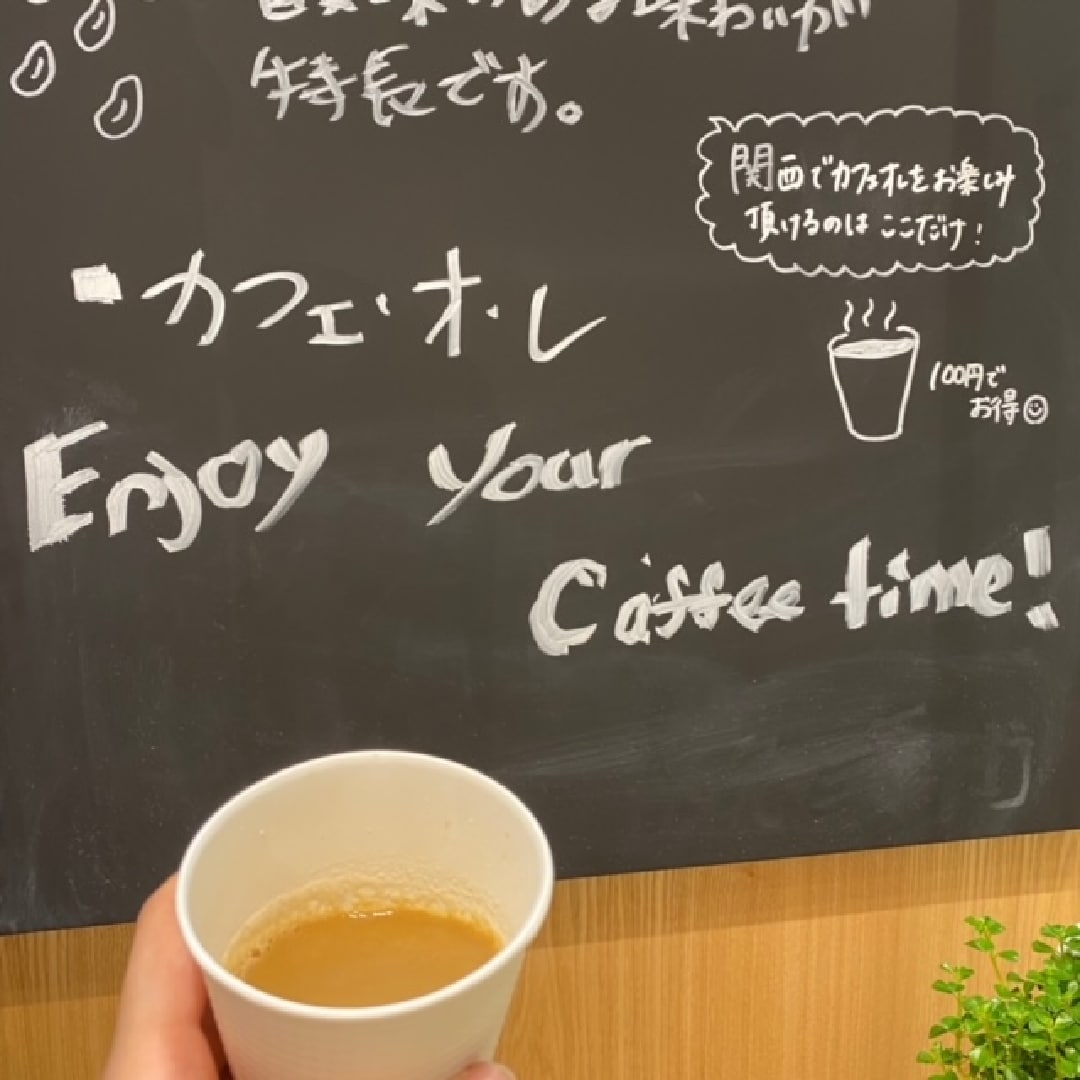 味わいが
特長です。
関西でカフェオレをお楽しみ
頂けるのは ここだけ！
カフェ・オ・レ
100円で
お得
Enjoy your
Coffee time!